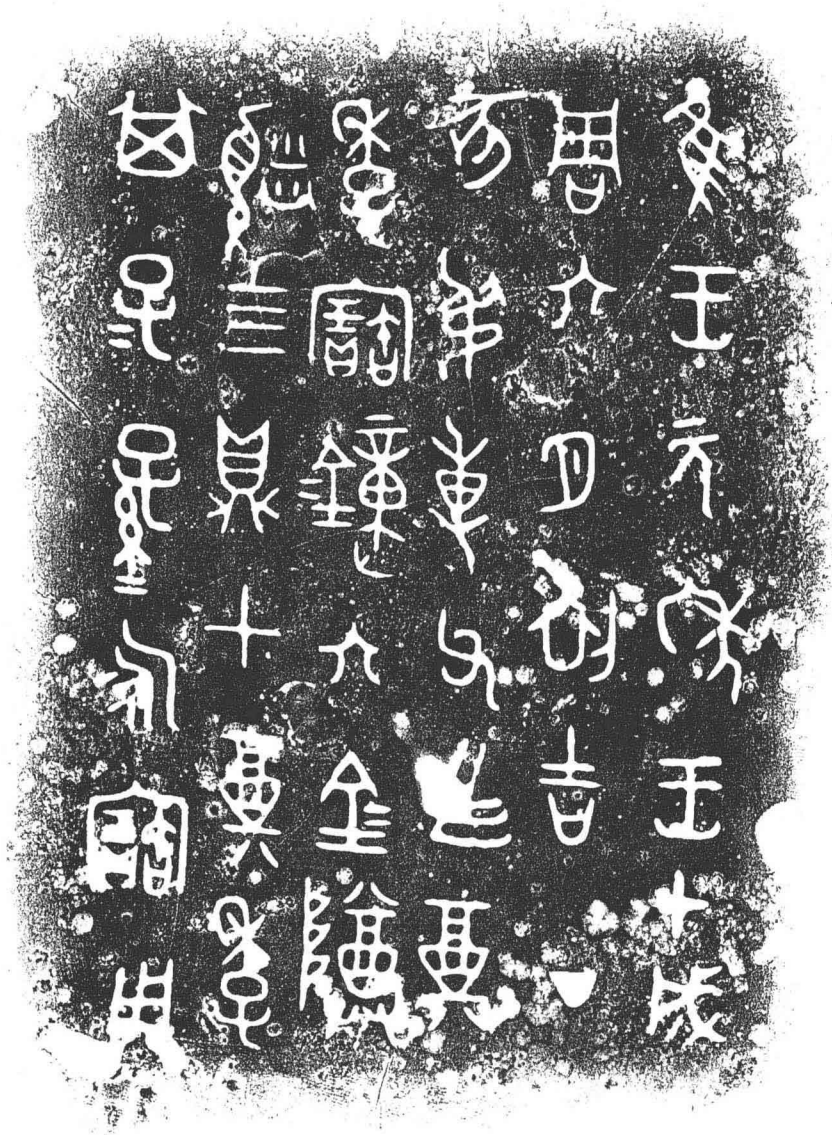 隹王元年王才成
周六月初吉丁
亥弔尃父乍奠
季寶鐘六金尊
盨四鼎七奠季
其子＝孫＝永寶用